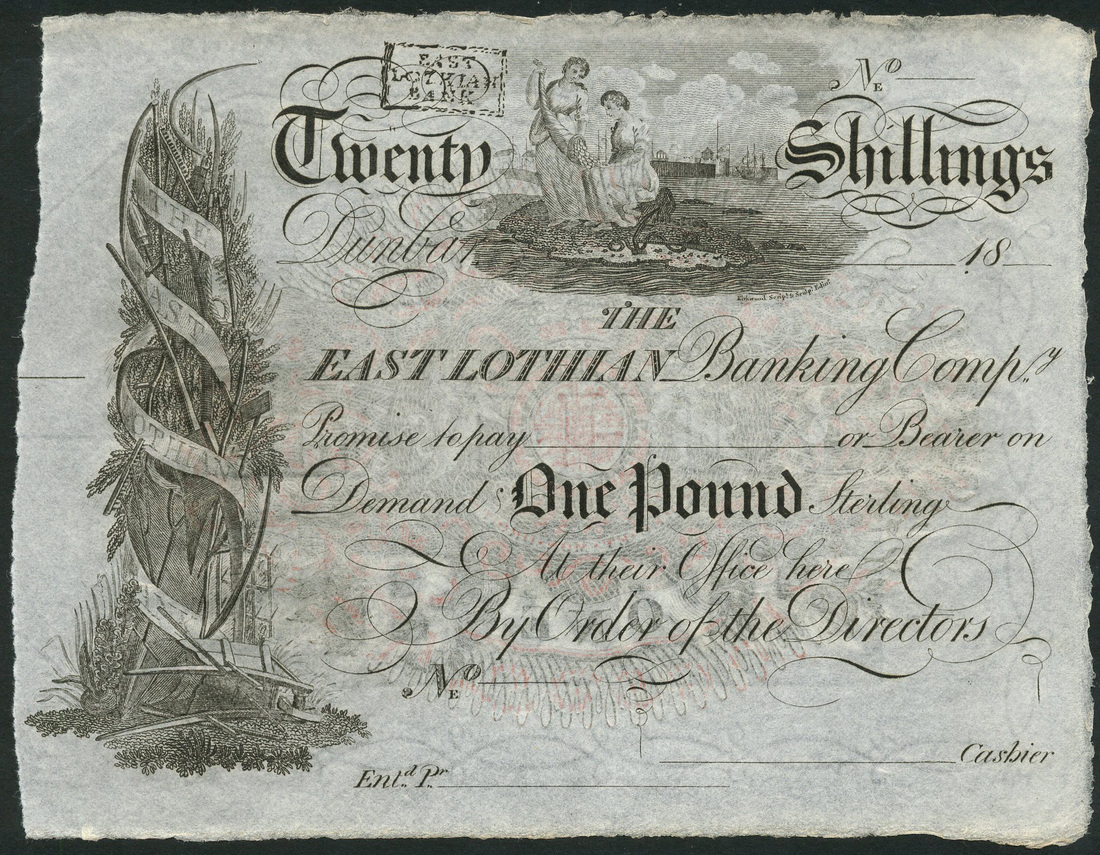 EAST
LOTHIAN
BANK
Nº
Twenty Shillings
Dunbar 18
Kirkwood Script. & Sculpt. Edinr.
THE
EAST LOTHIAN Banking Comp.y
Promise to pay or Bearer on
Demand One Pound Sterling
At their Office here
By Order of the Directors
Nº
Cashier
Ent.d P.r
THE
EAST
LOTHIAN